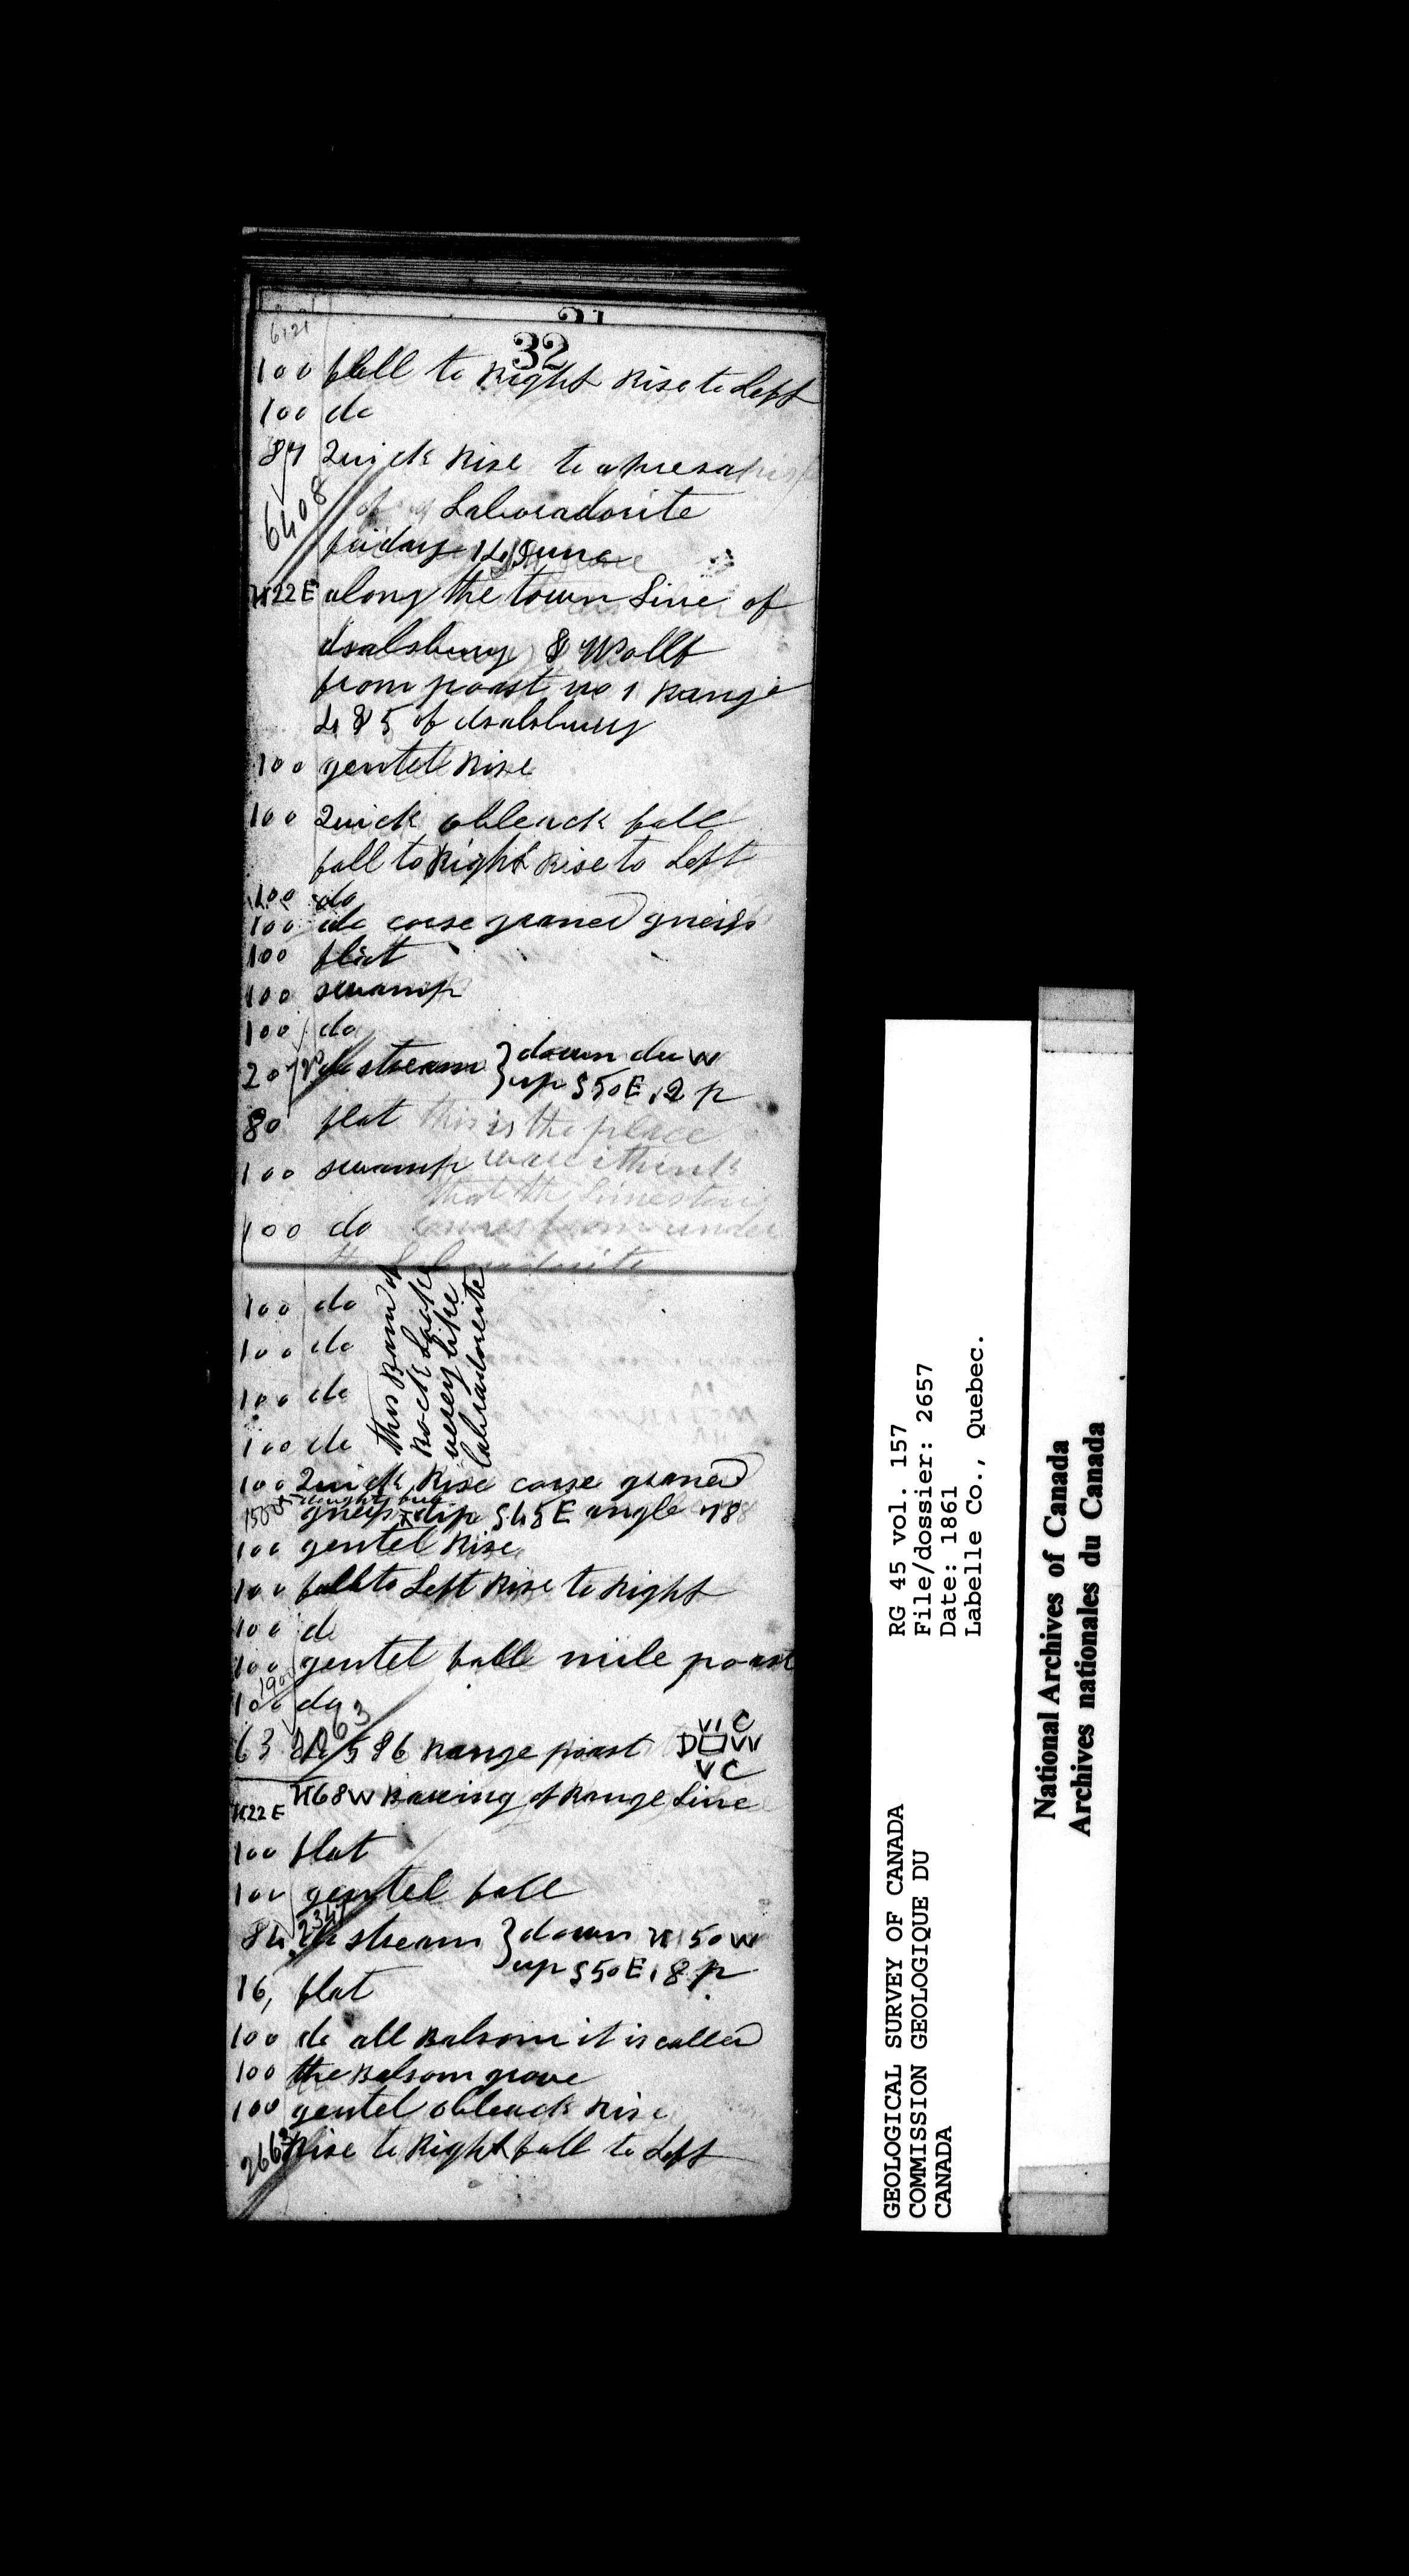 32
6121
100 fall to Right Rise to Left
100 do
87 Quick Rise to a
6408 of Laboradorite
friday 14 June
N22E along the town Line of
dsalsbury & Wollf
from poast no 1 Range
4 & 5 of dsalsbury
100 gentel Rise
100 Quick obleack fall
fall to Right Rise to Left
100 do
100 do corse graned gneiss
100 flat
100 swamp
100 do
20 720 do stream } down du W
up S50E, 2 p
80 flat this is the place
100 swamp ware i think
that the Limeston
100 do comes from under
the Labradorite
100 do
100 do
100 do
100 do
this Band of
Rock Looks
verey like
labradoreite
100 Quick Rise corse graned
1500 gneiss dip S45E angle 78
100 gentel Rise
100 fall to Left Rise to Right
100 do
100 gentel fall mile poast
1900
100 do
63 at 5 & 6 Range poast
VI C
D W
V C
N68W Baring of Range Line
N22E
100 flat
100 gentel fall
84 stream } down N50W
up S50E, 8 p
16, flat
100 do all Balsom it is called
100 the Balsom grove
100 gentel obleack Rise
2663 Rise to Right fall to Left
GEOLOGICAL SURVEY OF CANADA
COMMISSION GEOLOGIQUE DU
CANADA
RG 45 vol. 157
File/dossier: 2657
Date: 1861
Labelle Co., Quebec.
National Archives of Canada
Archives nationales du Canada